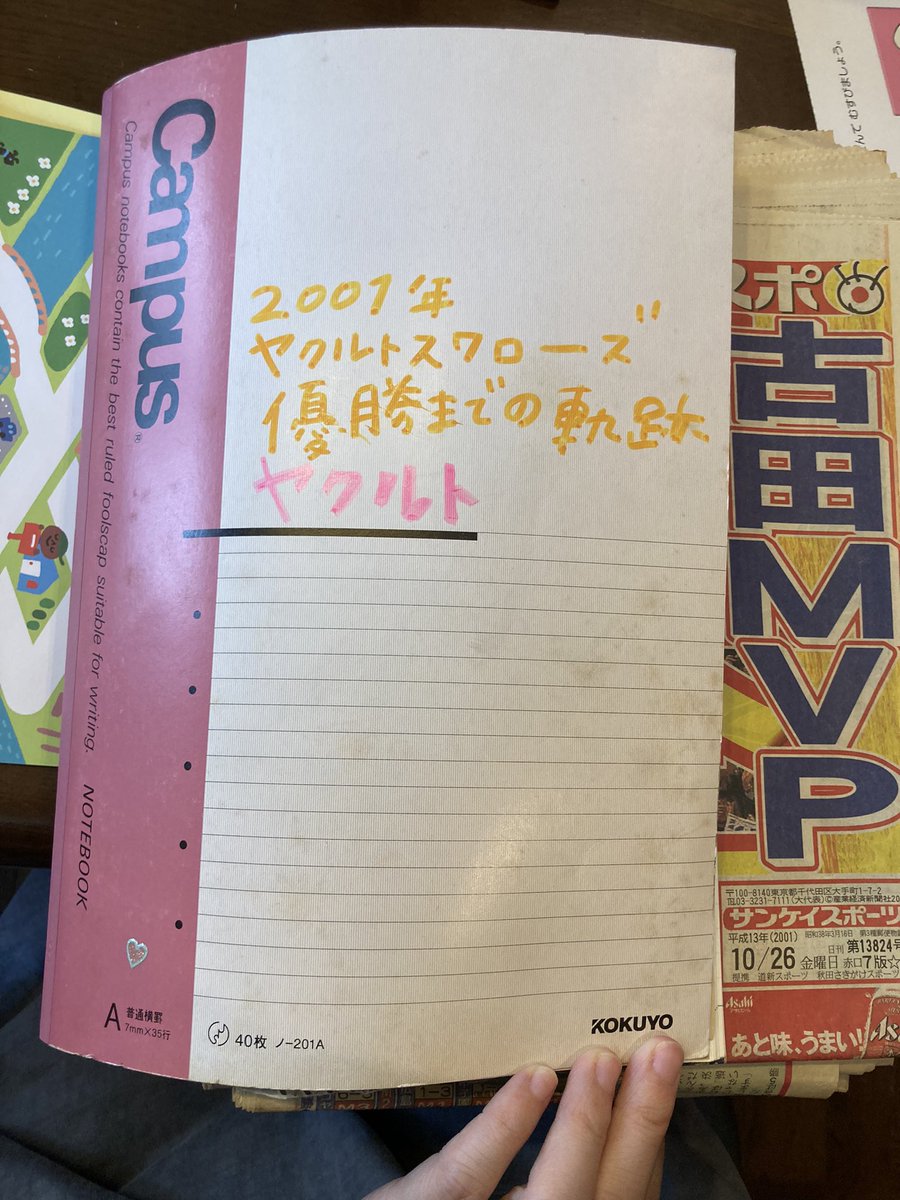 Campus®
Campus notebooks contain the best ruled foolscap suitable for writing. NOTEBOOK
2001年
ヤクルトスワローズ
優勝までの軌跡
ヤクルト
A 普通横罫
7mm×35行
40枚 ノ-201A
KOKUYO
んで むすびましょう。
スポ
古田MVP
〒100-8140東京都千代田区大手町1-7-2
℡03-3231-7111(大代表)©産業経済新聞社20
サンケイスポーツ
平成13年(2001) 昭和38年3月18日 第3種郵便物
10/26 金曜日 赤口 7版☆
日刊 第13824号
提携 道新スポーツ 秋田さきがけスポーツ
Asahi
あと味、うまい!!
Asahi